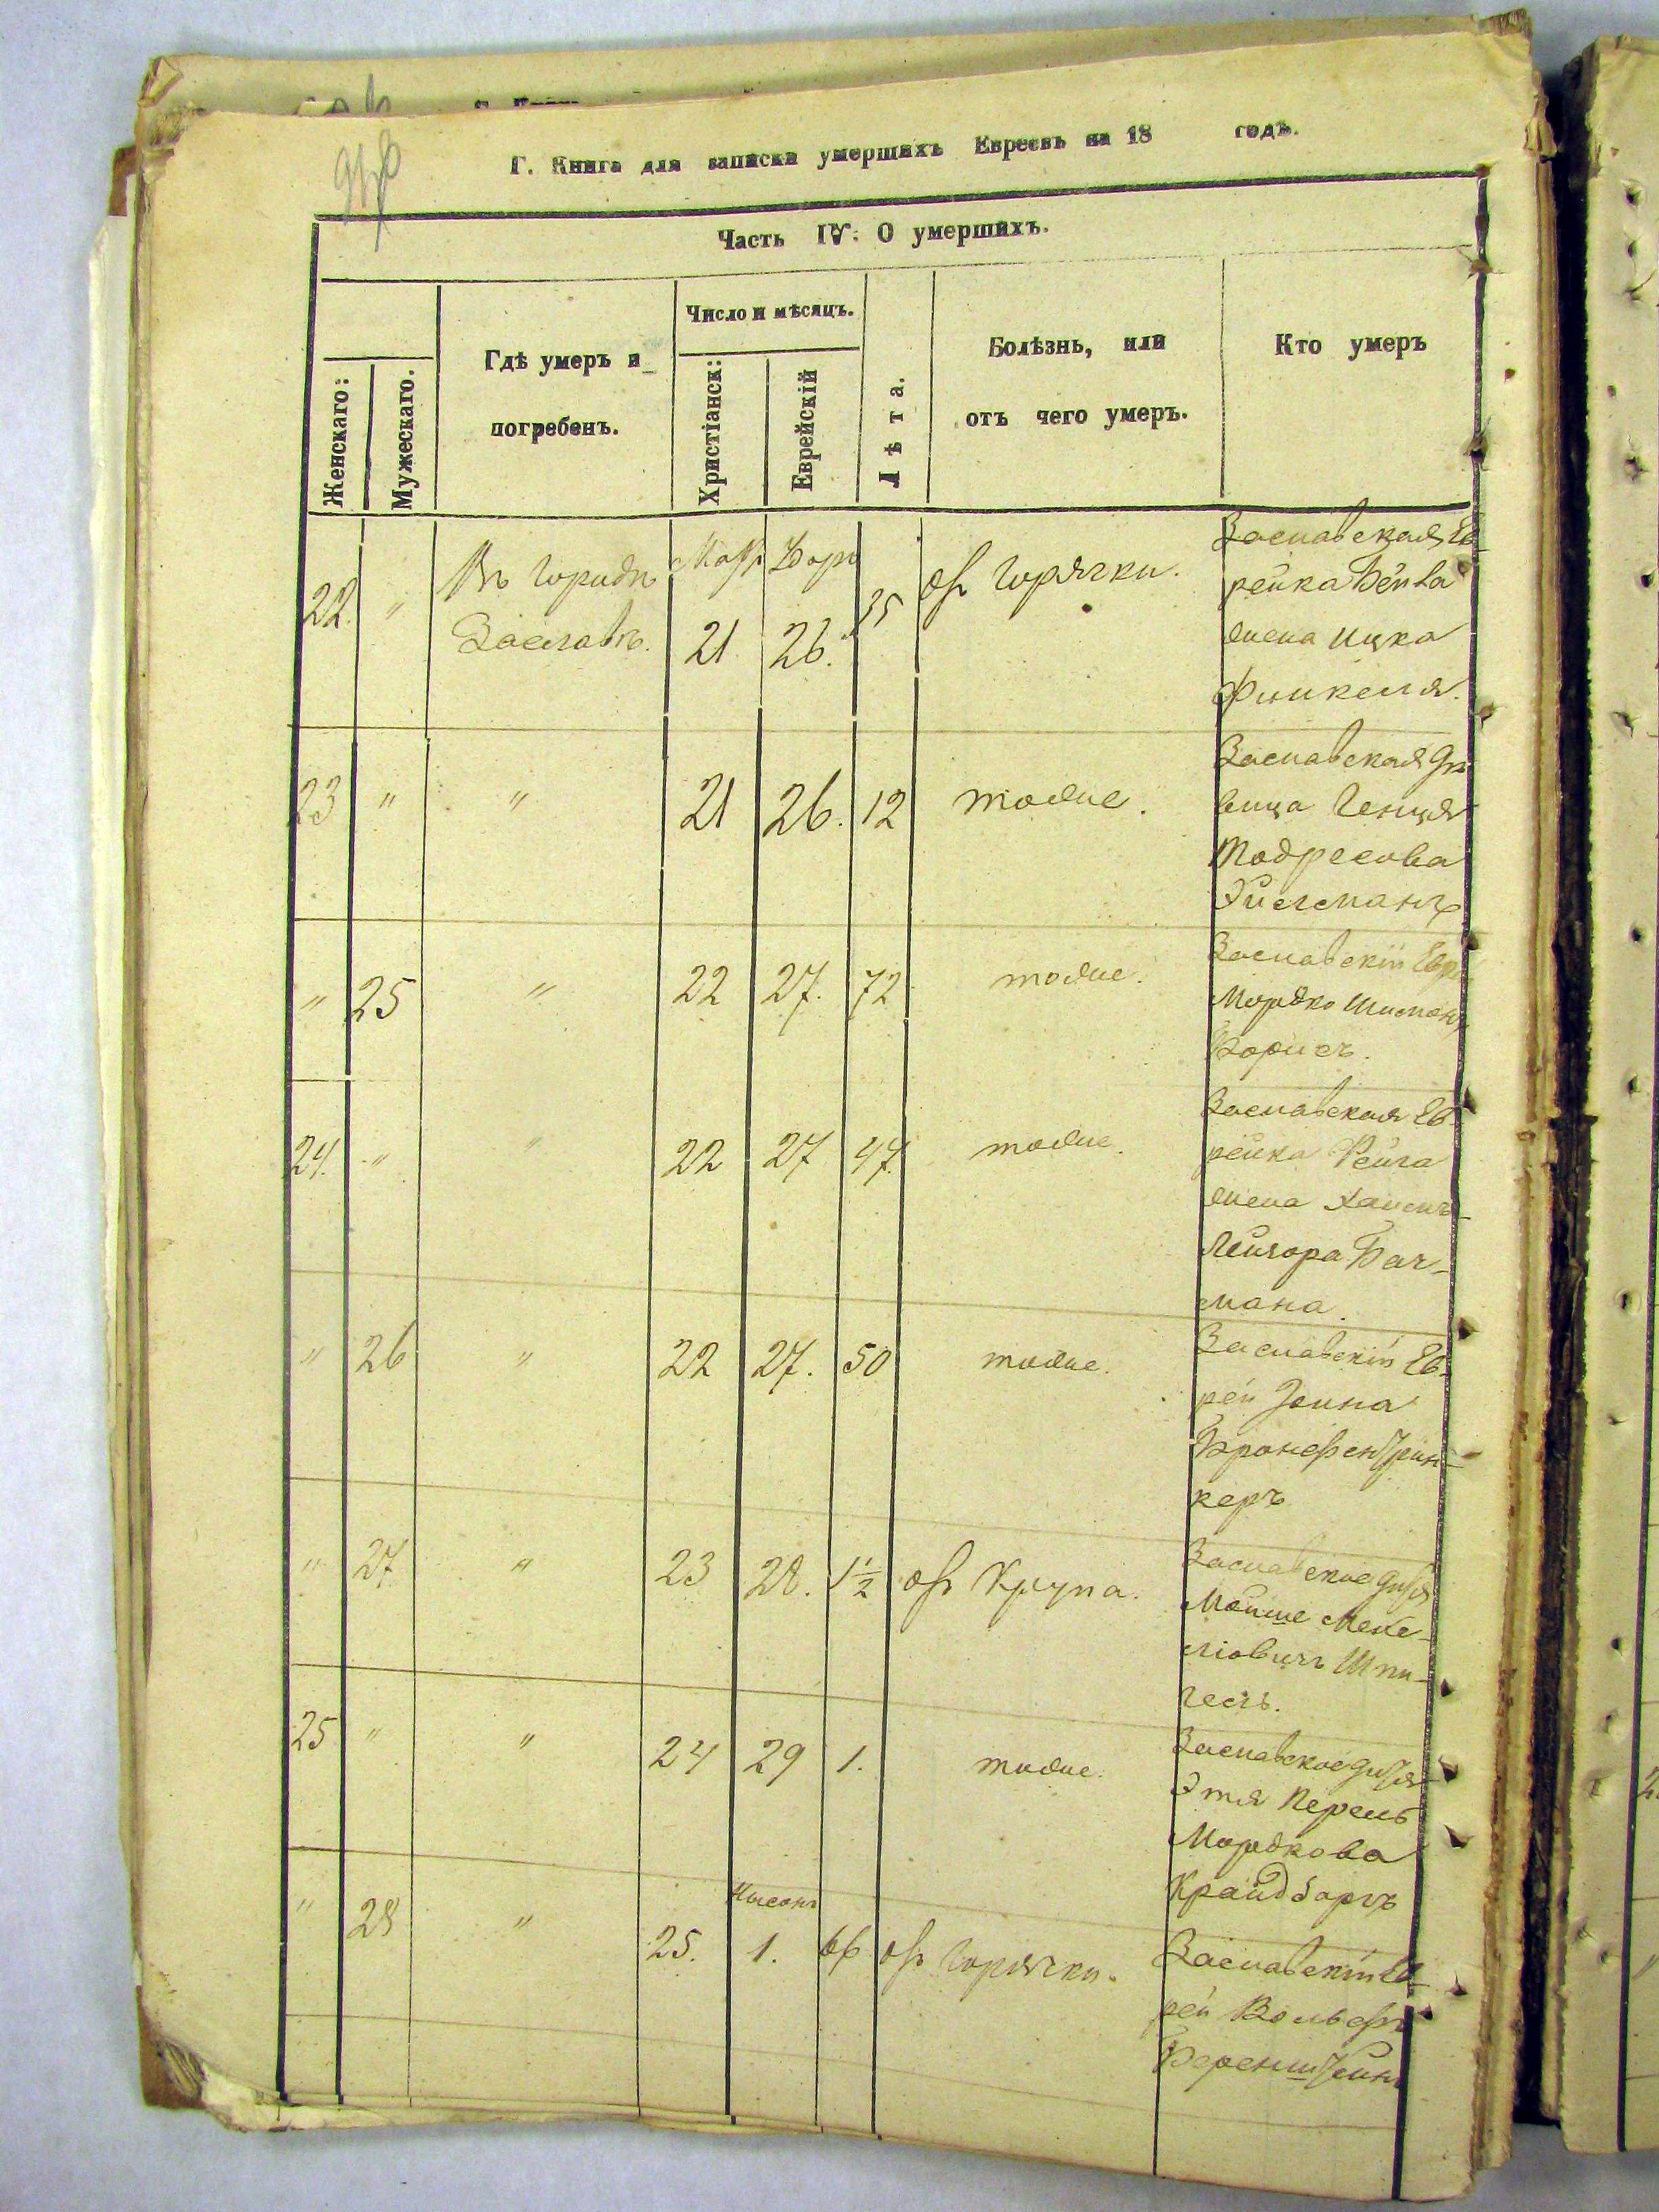 Г. Книга для записки умершихъ Евреевъ на 18 годъ.
Часть IV: О умершихъ.
Женскаго:
Мужескаго.
Гдѣ умеръ и
погребенъ.
Число и мѣсяцъ.
Христіанск:
Еврейскій
Лѣта.
Болѣзнь, или
отъ чего умеръ.
Кто умеръ
22. " Въ городѣ Март 35 от горячки. Заславская Ев
Заславѣ. 21 26. рейка Бейла
жена Ицка
Финкеля.
23 " " 21 26. 12 тоже. Заславская дѣ
вица Генця
Тодресова
" 25 " 22 27. 72 тоже. Заславскій Евре
Мордко
24. " " 22 27 47. тоже. Заславская Ев
рейка
жена
Лейзора Бач-
мана.
" 26 " 22 27. 50 тоже. Заславскій Ев-
рей Іойна
Бронфентрин-
керъ
" 27 " 23 28. 1½ от Крупа. Заславское дитя
Мойше
Шпи-
гель.
25 " " 24 29 1. тоже. Заславское дитя
Этя Перель
Мордкова
Крайдбаргъ
Нисонъ
" 28 " 25. 1. 66 от горячки. Заславскій Ев-
рей Вольфъ
Беренштейнъ